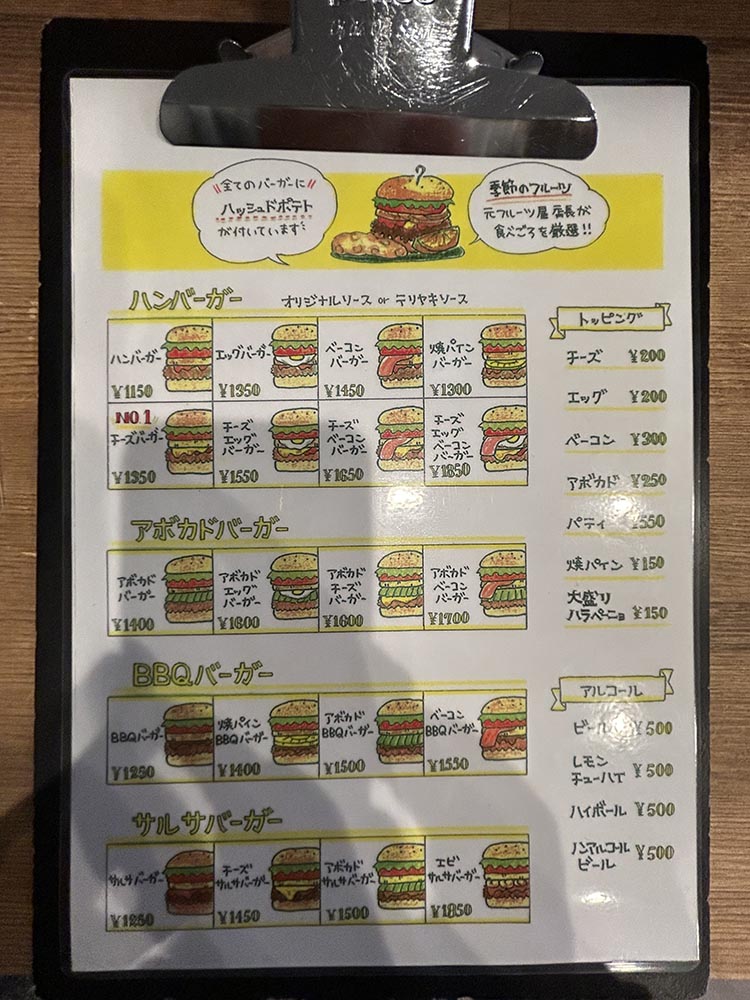 全てのバーガーに
ハッシュドポテト
が付いています
季節のフルーツ
元フルーツ屋店長が
食べごろを厳選!!
ハンバーガー
オリジナルソース or テリヤキソース
ハンバーガー
¥1150
エッグバーガー
¥1350
ベーコン
バーガー
¥1450
焼パイン
バーガー
¥1300
NO.1
チーズバーガー
¥1350
チーズ
エッグ
バーガー
¥1550
チーズ
ベーコン
バーガー
¥1650
チーズ
エッグ
ベーコン
バーガー
¥1850
アボカドバーガー
アボカド
バーガー
¥1400
アボカド
エッグ
バーガー
¥1600
アボカド
チーズ
バーガー
¥1600
アボカド
ベーコン
バーガー
¥1700
BBQバーガー
BBQバーガー
¥1250
焼パイン
BBQバーガー
¥1400
アボカド
BBQバーガー
¥1500
ベーコン
BBQバーガー
¥1550
サルサバーガー
サルサバーガー
¥1250
チーズ
サルサバーガー
¥1450
アボカド
サルサバーガー
¥1500
エビ
サルサバーガー
¥1850
トッピング
チーズ ¥200
エッグ ¥200
ベーコン ¥300
アボカド ¥250
パティ ¥550
焼パイン ¥150
大盛り
ハラペーニョ ¥150
アルコール
ビール ¥500
レモン
チューハイ ¥500
ハイボール ¥500
ノンアルコール
ビール ¥500